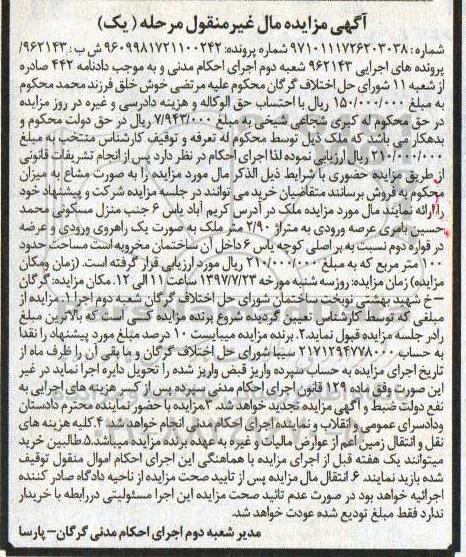 آگهی مزایده مال غیرمنقول مرحله (یک)
شماره: ۹۷۱۰۱۱۱۷۲۶۲۰۳۰۳۸ شماره پرونده: ۹۶۰۹۹۸۱۷۲۱۱۰۰۲۴۲ ش ب: ۹۶۲۱۴۳/
پرونده های اجرایی ۹۶۲۱۴۳ شعبه دوم اجرای احکام مدنی و به موجب دادنامه ۴۴۲ صادره
از شعبه ۱۱ شورای حل اختلاف گرگان محکوم علیه مرتضی خوش خلق فرزند محمد محکوم
به مبلغ ۱۵۰/۰۰۰/۰۰۰ ریال با احتساب حق الوکاله و هزینه دادرسی و غیره در روز مزایده
در حق محکوم له کبری شجاعی شیخی به مبلغ ۷/۹۴۳/۰۰۰ ریال در حق دولت محکوم و
بدهکار می باشد که ملک ذیل توسط محکوم له تعرفه و توقیف کارشناس منتخب به مبلغ
۲۱۰/۰۰۰/۰۰۰ ریال ارزیابی نموده لذا اجرای احکام در نظر دارد پس از انجام تشریفات قانونی
از طریق مزایده حضوری با شرایط ذیل الذکر مال مورد مزایده را به صورت مشاع به میزان
محکوم به فروش برسانند متقاضیان خرید می توانند در جلسه مزایده شرکت و پیشنهاد خود
را ارائه نمایند مال مورد مزایده ملک در آدرس کریم آباد یاس ۶ جنب منزل مسکونی محمد
حسین بامری عرصه ورودی به متراژ ۲/۹۰ متر ملک به صورت یک راهروی ورودی و عرضه
در قواره دوم نسبت به بر اصلی کوچه یاس ۶ داخل آن ساختمان مخروبه است مساحت حدود
۱۰۰ متر مربع که به مبلغ ۲۱۰/۰۰۰/۰۰۰ ریال مورد ارزیابی قرار گرفته است. (زمان ومکان
مزایده) زمان مزایده: روز سه شنبه مورخه ۱۳۹۷/۷/۲۳ ساعت ۱۱ الی ۱۲. مکان مزایده: گرگان
-خ شهید بهشتی نوبخت ساختمان شورای حل اختلاف گرگان شعبه دوم اجرا ۱. مزایده از
مبلغی که توسط کارشناس تعیین گردیده شروع برنده مزایده کسی است که بالاترین مبلغ
را در جلسه مزایده قبول نماید ۲. برنده مزایده میبایست ۱۰ درصد مبلغ مورد پیشنهاد را نقدا
به حساب ۲۱۷۱۲۹۴۷۷۸۰۰۰ سیبا شورای حل اختلاف گرگان و ما بقی آن را ظرف ماه از
تاریخ اجرای مزایده به حساب سپرده واریز قبض واریز شده را تحویل دایره اجرا نماید در غیر
این صورت وفق ماده ۱۲۹ قانون اجرای احکام مدنی سپرده پس از کسر هزینه های اجرایی به
نفع دولت ضبط و آگهی مزایده تجدید خواهد شد. ۳. مزایده با حضور نماینده محترم دادستان
ودادسرای عمومی و انقلاب و نماینده اجرای احکام مدنی انجام خواهد شد ۴. کلیه هزینه های
نقل و انتقال زمین اعم از عوارض مالیات و غیره به عهده برنده مزایده میباشد. ۵. طالبین خرید
میتوانند یک هفته قبل از اجرای مزایده با هماهنگی این اجرای احکام اموال منقول توقیف
شده بازید نمایند. ۶. انتقال مال مزایده پس از تایید صحت مزایده از ناحیه دادگاه صادر کننده
اجرائیه خواهد بود در صورت عدم تائید صحت مزایده این اجرا مسئولیتی در رابطه با خریدار
ندارد فقط مبلغ تودیع شده عودت خواهد شد.
مدیر شعبه دوم اجرای احکام مدنی گرگان- پارسا